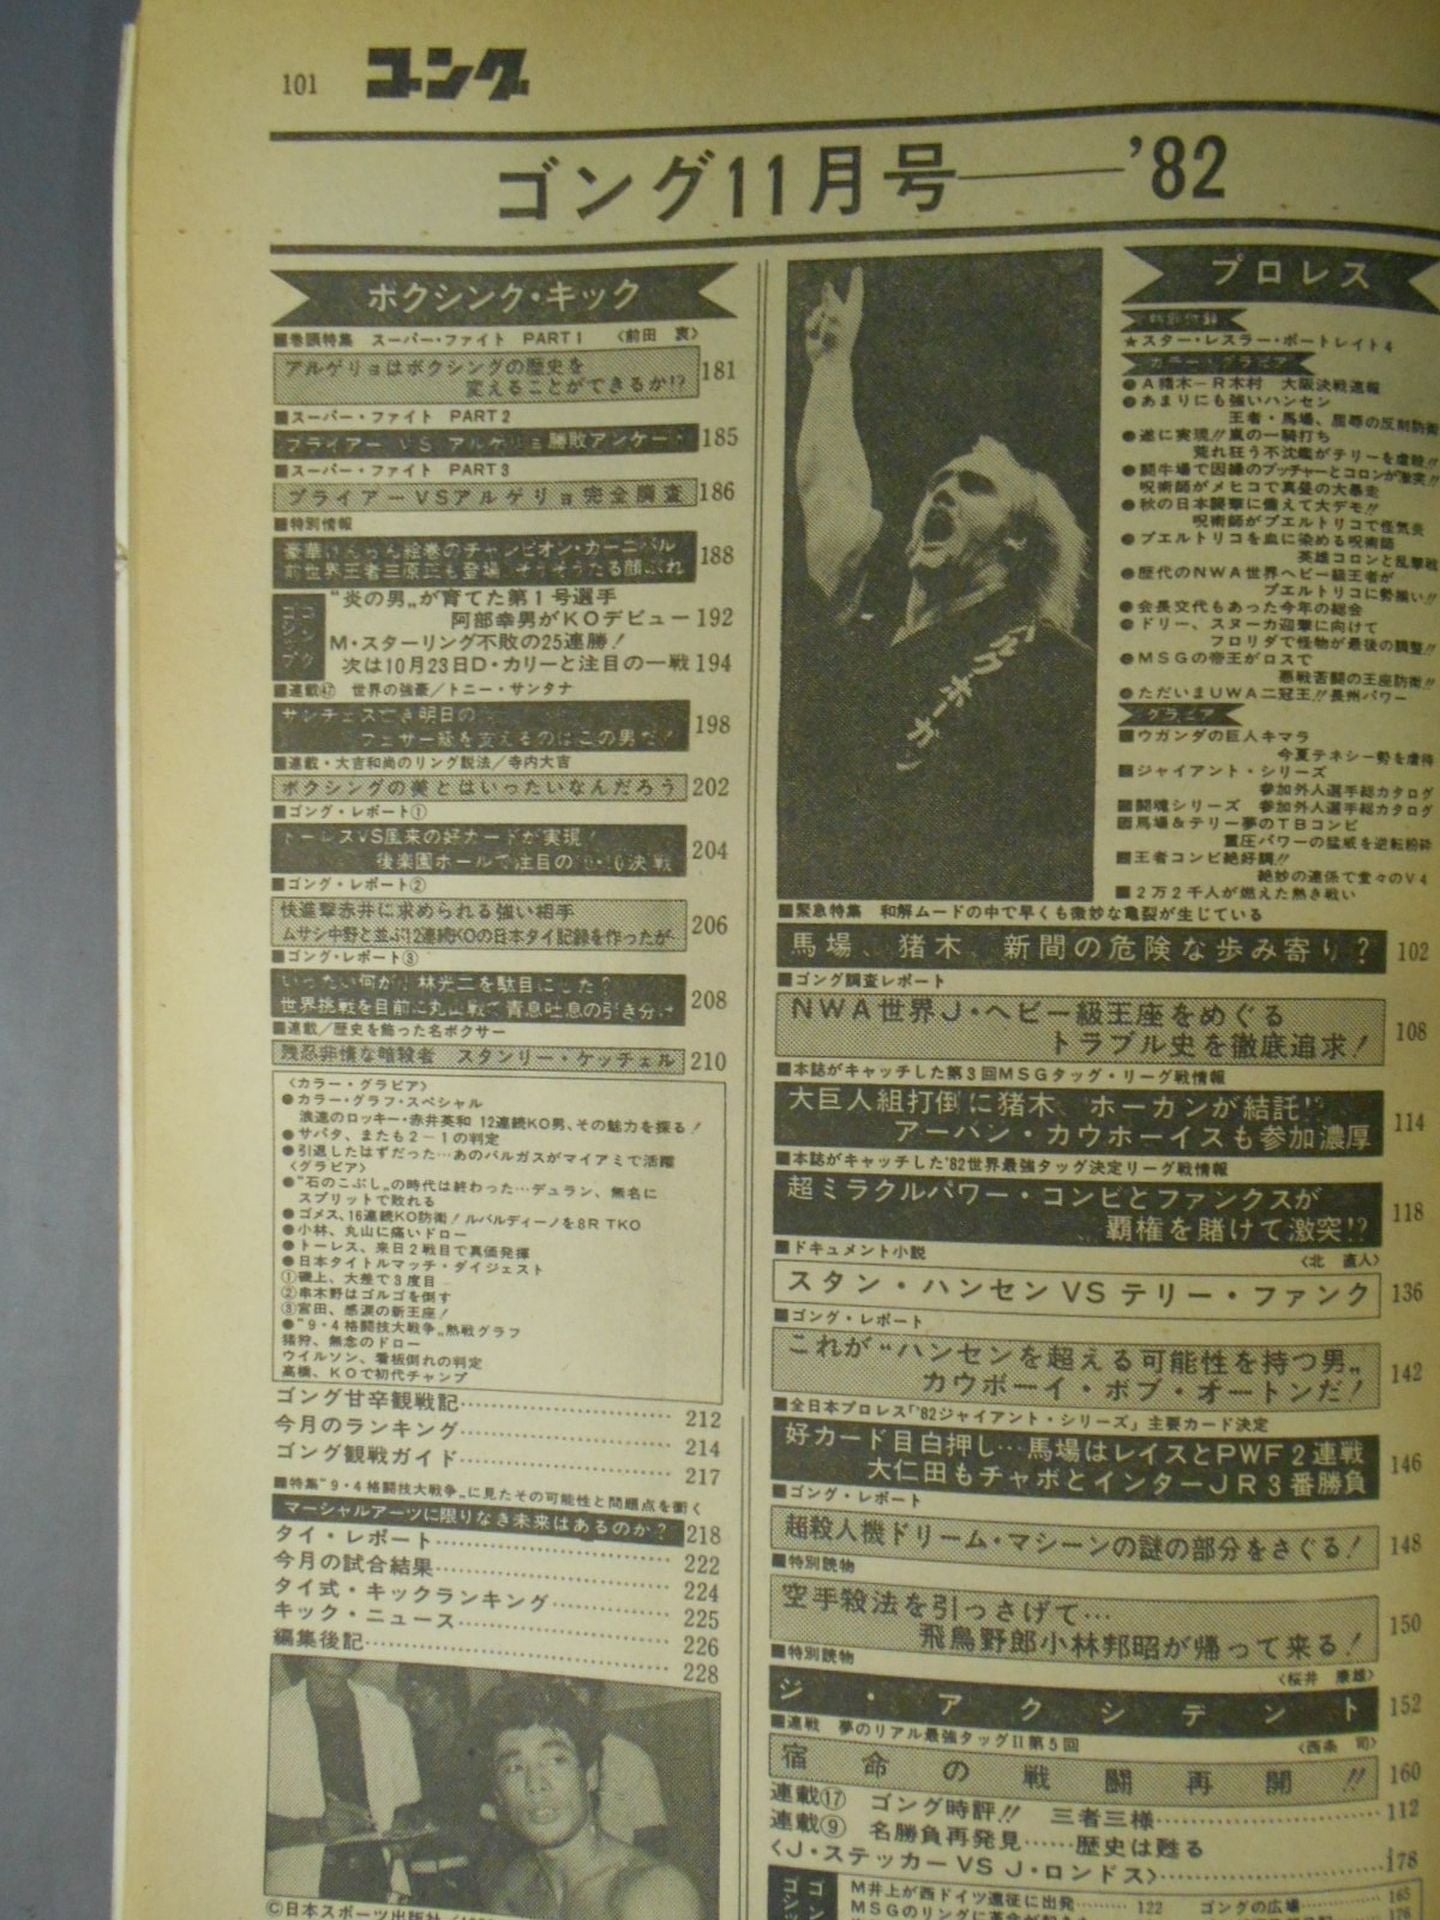 101 ゴング
ゴング11月号――'82
ボクシング・キック
■巻頭特集 スーパー・ファイト PART1 〈前田 衷〉
アルゲリョはボクシングの歴史を
変えることができるか!? 181
■スーパー・ファイト PART2
プライアー VS アルゲリョ勝敗アンケート 185
■スーパー・ファイト PART3
プライアーVSアルゲリョ完全調査 186
■特別情報
豪華けんらん絵巻のチャンピオン・カーニバル
前世界王者三原正も登場、そうそうたる顔ぶれ 188
ゴング
ゴシップ
“炎の男„が育てた第1号選手
阿部幸男がKOデビュー 192
M・スターリング不敗の25連勝!
次は10月23日D・カリーと注目の一戦 194
■連載㊼ 世界の強豪/トニー・サンタナ
サンチェス亡き明日の
フェザー級を支えるのはこの男だ! 198
■連載・大吉和尚のリング説法/寺内大吉
ボクシングの美とはいったいなんだろう 202
■ゴング・レポート①
トーレスVS風来の好カードが実現!
後楽園ホールで注目の 決戦 204
■ゴング・レポート②
快進撃赤井に求められる強い相手
ムサシ中野と並ぶ12連続KOの日本タイ記録を作ったが… 206
■ゴング・レポート③
いったい何が小林光二を駄目にした?
世界挑戦を目前に丸山戦で青息吐息の引き分け 208
■連載/歴史を飾った名ボクサー
残忍非情な暗殺者 スタンリー・ケッチェル 210
〈カラー・グラビア〉
●カラー・グラフ・スペシャル
浪速のロッキー・赤井英和 12連続KO男、その魅力を探る!
●サパタ、またも2−1の判定
●引退したはずだった…あのバルガスがマイアミで活躍
〈グラビア〉
●“石のこぶし„の時代は終わった…デュラン、無名に
スプリットで敗れる
●ゴメス、16連続KO防衛! ルパルディーノを8R TKO
●小林、丸山に痛いドロー
●トーレス、来日2戦目で真価発揮
●日本タイトルマッチ・ダイジェスト
①磯上、大差で3度目
②串木野はゴルゴを倒す
③宮田、感涙の新王座!
●“9・4格闘技大戦争„熱戦グラフ
猪狩、無念のドロー
ウイルソン、看板倒れの判定
高橋、KOで初代チャンプ
ゴング甘辛観戦記…………212
今月のランキング…………214
ゴング観戦ガイド…………217
■特集“9・4格闘技大戦争„に見たその可能性と問題点を衝く
マーシャルアーツに限りなき未来はあるのか? 218
タイ・レポート…………222
今月の試合結果…………224
タイ式・キックランキング…………225
キック・ニュース…………226
編集後記…………228
©日本スポーツ出版社
プロレス
特別付録
★スター・レスラー・ポートレイト4
カラー・グラビア
●A猪木−R木村 大阪決戦速報
●あまりにも強いハンセン
王者・馬場、屈辱の反則防衛
●遂に実現!!嵐の一騎打ち
荒れ狂う不沈艦がテリーを虐殺!!
●闘牛場で因縁のブッチャーとコロンが激突!!
呪術師がメヒコで真昼の大暴走
●秋の日本襲撃に備えて大デモ!!
呪術師がプエルトリコで怪気炎
●プエルトリコを血に染める呪術師
英雄コロンと乱撃戦
●歴代のNWA世界ヘビー級王者が
プエルトリコに勢揃い!!
●会長交代もあった今年の総会
●ドリー、スヌーカ迎撃に向けて
フロリダで怪物が最後の調整!!
●MSGの帝王がロスで
悪戦苦闘の王座防衛!!
●ただいまUWA二冠王!!長州パワー
グラビア
■ウガンダの巨人キマラ
今夏テネシー勢を虐待
■ジャイアント・シリーズ
参加外人選手総カタログ
■闘魂シリーズ 参加外人選手総カタログ
■馬場&テリー夢のTBコンビ
重圧パワーの猛威を逆転粉砕
■王者コンビ絶好調!!
絶妙の連係で堂々のV4
■2万2千人が燃えた熱き戦い
〈ハルク・ホーガン〉
■緊急特集 和解ムードの中で早くも微妙な亀裂が生じている
馬場、猪木、新間の危険な歩み寄り? 102
■ゴング調査レポート
NWA世界J・ヘビー級王座をめぐる
トラブル史を徹底追求! 108
■本誌がキャッチした第3回MSGタッグ・リーグ戦情報
大巨人組打倒に猪木、ホーガンが結託!?
アーバン・カウボーイスも参加濃厚 114
■本誌がキャッチした'82世界最強タッグ決定リーグ戦情報
超ミラクルパワー・コンビとファンクスが
覇権を賭けて激突!? 118
■ドキュメント小説 〈北 直人〉
スタン・ハンセンVSテリー・ファンク 136
■ゴング・レポート
これが“ハンセンを超える可能性を持つ男„
カウボーイ・ボブ・オートンだ! 142
■全日本プロレス「'82ジャイアント・シリーズ」主要カード決定
好カード目白押し…馬場はレイスとPWF2連戦
大仁田もチャボとインターJR3番勝負 146
■ゴング・レポート
超殺人機ドリーム・マシーンの謎の部分をさぐる! 148
■特別読物
空手殺法を引っさげて…
飛鳥野郎小林邦昭が帰って来る! 150
■特別読物 〈桜井 康雄〉
ジ・アクシデント 152
■連戦 夢のリアル最強タッグII第5回 〈西条 司〉
宿命の戦闘再開!! 160
連載⑰ ゴング時評!! 三者三様…………112
連載⑨ 名勝負再発見……歴史は甦る
〈J・ステッカーVS J・ロンドス〉…………178
M井上が西ドイツ遠征に出発………122
ゴングの広場…………165